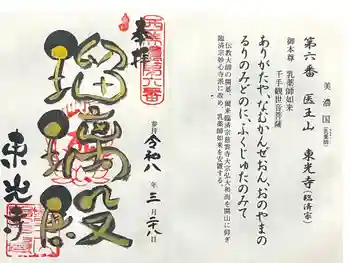 美濃国
第六番 医王山 東光寺(臨済宗)
御本尊 乳薬師如来
千手観世音菩薩
ありがたや、なむかんぜおん、おのやまの
るりのみどのに、ふくじゅたのみて
伝教大師の開基、爾来臨済宗慈雲寺大宗弘大和尚を開山に仰ぎ
臨済宗妙心寺派に改め、乳薬師如来を安置する。
奉拝
西美濃
第六番
瑠璃殿
瑠璃殿
東光寺
参拝 令和八年三月二八日